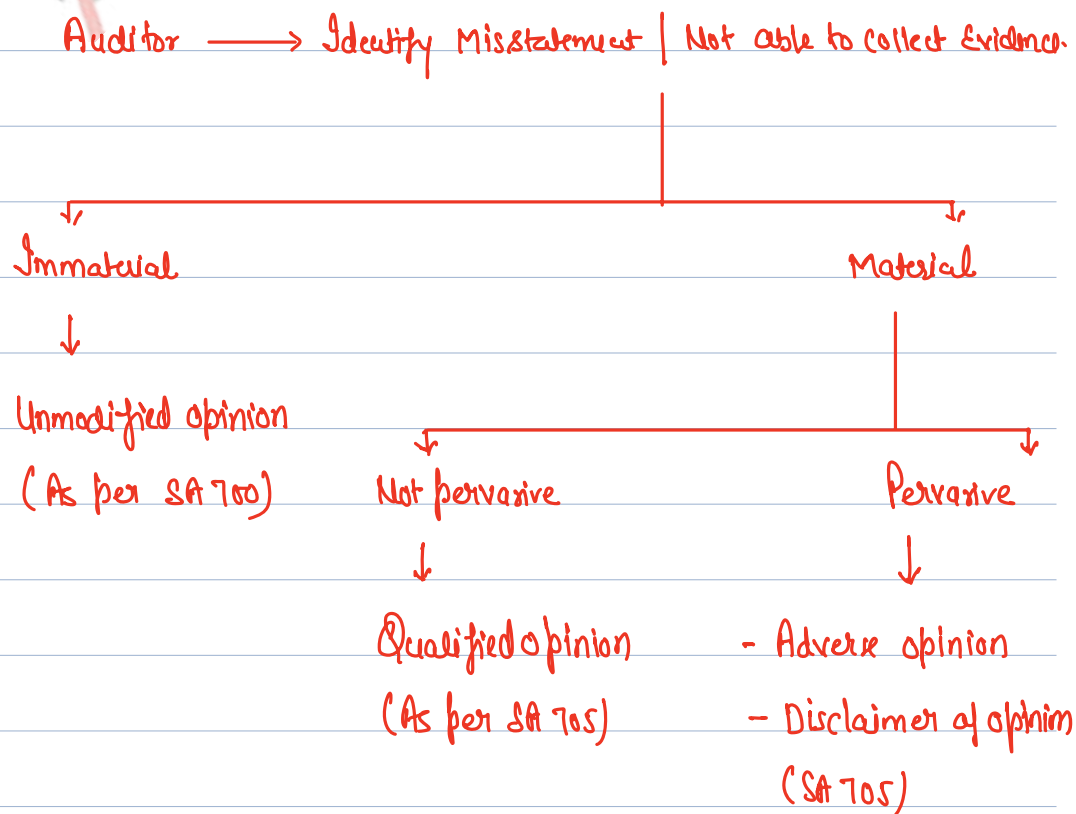 Auditor → Identify Misstatement | Not able to collect Evidence.
Immaterial
Material
Unmodified opinion
(As per SA 700)
Not pervasive
Pervasive
Qualified opinion
(As per SA 705)
- Adverse opinion
- Disclaimer of opinion
(SA 705)